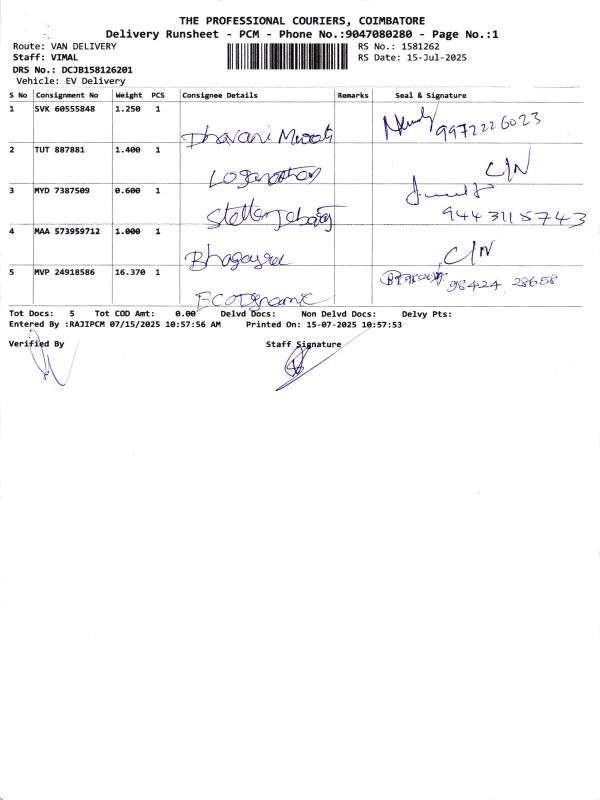 THE PROFESSIONAL COURIERS, COIMBATORE
Delivery Runsheet - PCM - Phone No.:9047080280 - Page No.:1
Route: VAN DELIVERY RS No.: 1581262
Staff: VIMAL RS Date: 15-Jul-2025
DRS No.: DCJB158126201
Vehicle: EV Delivery
S No Consignment No Weight PCS Consignee Details Remarks Seal & Signature
1 SVK 60555848 1.250 1
Dharani 9972226023
2 TUT 887881 1.400 1
Loganathan C/N
3 MYD 7387509 0.600 1
9443115743
4 MAA 573959712 1.000 1
C/N
5 MVP 24918586 16.370 1
98424 28658
Tot Docs: 5 Tot COD Amt: 0.00 Delvd Docs: Non Delvd Docs: Delvy Pts:
Entered By :RAJIPCM 07/15/2025 10:57:56 AM Printed On: 15-07-2025 10:57:53
Verified By Staff Signature